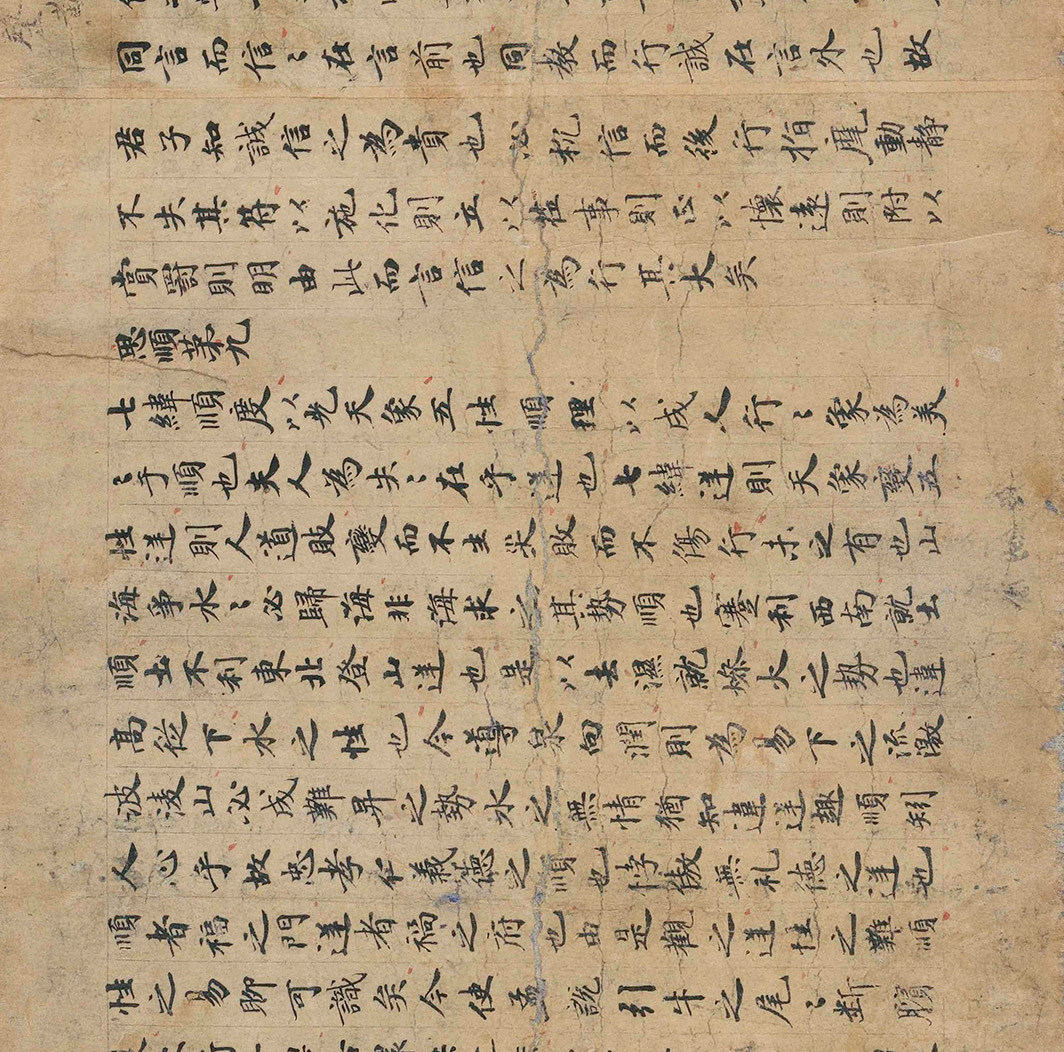 同言而信〻在言前也同教而行誠在言外也故
君子知誠信之為貴也必信而後行指麾動静
不失其符以施化則立以莅事則正以懷遠則附以
賞罰則明由此而言信之為行其大矣
思順苐九
七緯順度以光天象五性順理以成人行〻象為美
〻乎順也夫人為失〻在乎逆也七緯逆則天象變五
性逆則人道敗變而不生灾敗而不傷行未之有也山
海爭水〻必歸海非海求之其勢順也蹇利西南就土
順土不利東北登山逆也是以去濕就燥火之勢也違
高從下水之性也今導泉向澗則為易下之流激
波淩山必成難昇之勢水之無情猶知違逆趣順矧
人心乎故忠孝仁義德之順也悖傲無礼德之逆也
順者福之門逆者禍之府也由是觀之逆性之難順
性之易聊可識矣今使孟說引牛之尾〻斷臏